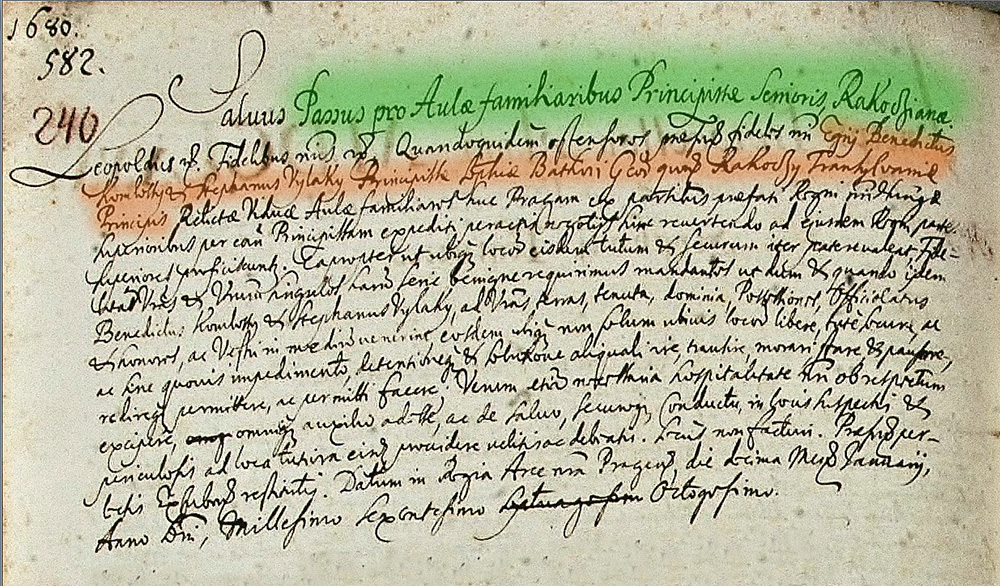 1680.
582.
240
Saluus Passus pro Aulæ familiaribus Principissæ Senioris, Rakoczianæ
Leopoldus &c. Fidelibus nris &c. Quandoquidem ostensores præsens fideles nri Egrij Benedictus
Komlossy & Stephanus Vylaky Principissæ Sophiæ Bathori Georgij Rakoczy Transylvaniæ
Principis Relictæ Viduæ Aulæ familiares huc Pragam ex partibus præfati Regni nri Hungæ
superioribus per eam Principissam expediti, peractis negotijs hinc revertendo ad ejusdem Regni partes
superiores proficiscunt. Ut ubiq locor eisdem tutum & securum iter patere valeat, Fide-
litates Vras & Vrum singulos harum serie benigne requirimus mandantes ut dum & quando ijdem
Benedictus Komlossy & Stephanus Vylaky, ad Vras, terras, tenuta, dominia, Possessiones, Officiolatus
& honores, ac Vestri in medium venerint, eosdem ubiq non solum ubivis locor libere, tute secure, ac
ac sine quovis impedimento, detentione & solutione aliquali ire, transire, morari stare & pausare,
redireq permittere, ac permitti facere, Verum etiam hospitalitate nri ob respectum
excipere, omniq auxilio adesse, ac de saluo, securoq Conductu, in locis suspectis &
periculosis ad loca tutiora eis providere velitis ac debeatis. Secus non facturi. Præsens per-
lectis Exhibens restitutis. Datum in Regia Arce nra Pragens, die decima Mens January,
Anno Dni, Millesimo Sexcentesimo Octogesimo.